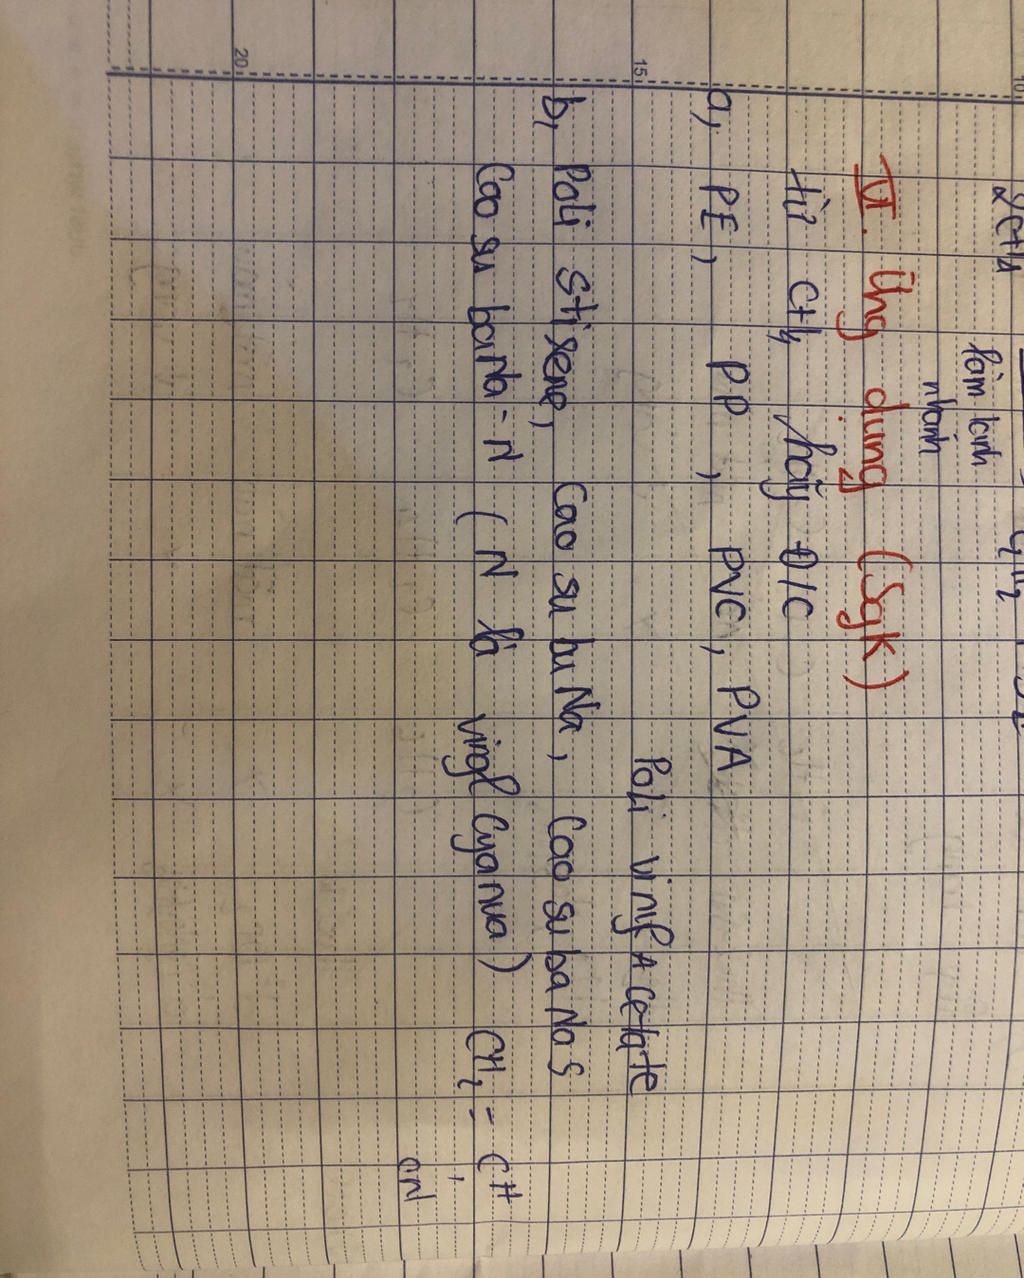 2CH4
C2H2
làm lạnh
nhanh
VI. Ứng dụng (SgK)
từ CH4 hãy Đ/C
a, PE, PP, PVC, PVA
Poli vinyl Acetate
b, Poli stizene, Cao su buNa, Cao su baNa S
Cao su baNa-N (N là vinyl Cyanua) CH2 = CH
CN
10
15
20